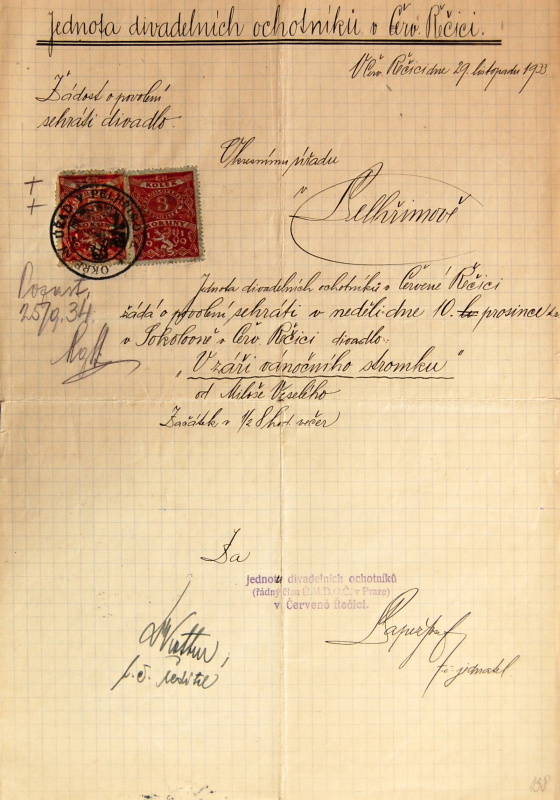 Jednota divadelních ochotníků v Červ. Řečici.
V Červ. Řečici dne 29. listopadu 1933
Žádost o povolení
sehráti divadlo.
Okresnímu úřadu
v
Pelhřimově
KOLEK
3
KORUNY
1919
OKRESNÍ ÚŘAD V PELHŘIMOVĚ
25/9. 34.
Jednota divadelních ochotníků v Červené Řečici
žádá o povolení sehráti v neděli dne 10. prosince t.r.
v Sokolovně v Červ. Řečici divadlo:
"V záři vánočního stromku"
od Miloše Veselého
Začátek v 1/2 8 hod. večer
Za
jednotu divadelních ochotníků
(řádný člen Ú.M.D.O.Č. v Praze)
v Červené Řečici.
t. č. ředitel
t. č. jednatel
158